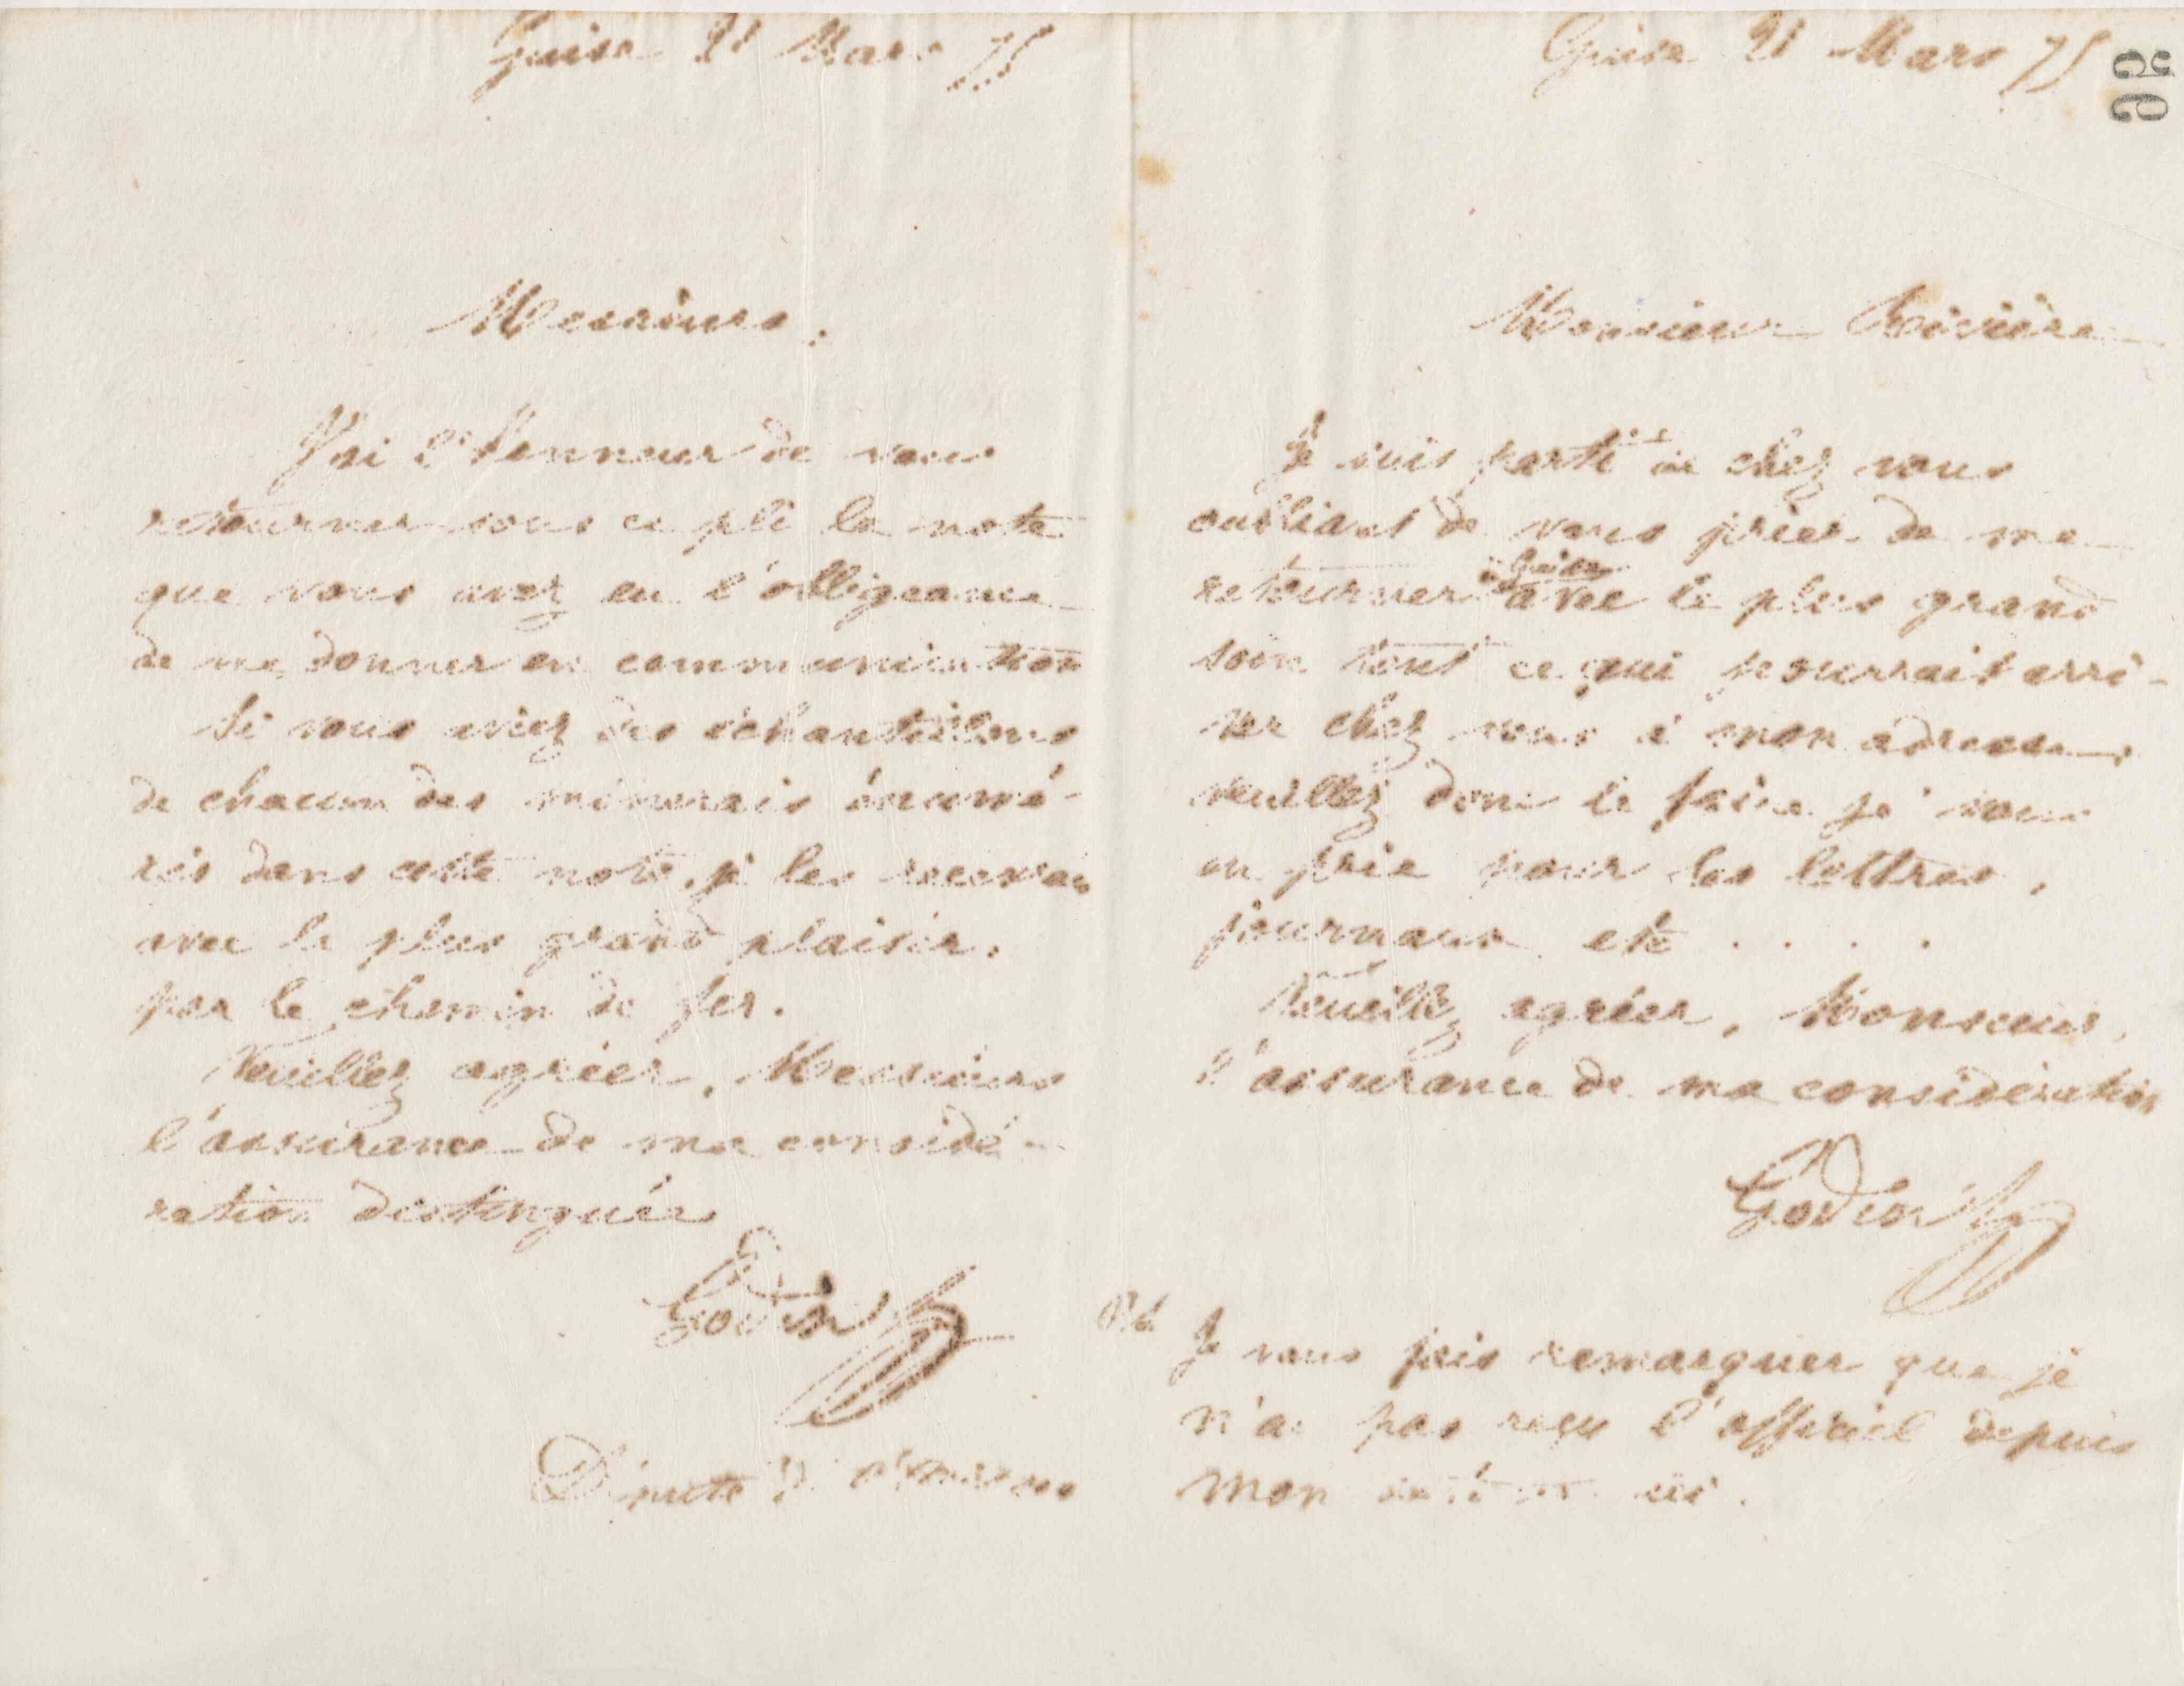 Guise 21 Mars 75
Messieurs.
J'ai l'honneur de vous
retourner sous ce pli la note
que vous avez eu l'obligeance
de me donner en communication
Si vous aviez des échantillons
de chacun des minerais énumé-
rés dans cette note, je les recevrai
avec le plus grand plaisir.
par le chemin de fer.
Veuillez agréer, Messieurs
l'assurance de ma considé-
ration distinguée
Godin
Député
Guise 21 Mars 75
56
Monsieur Rivière
Je suis parti de chez vous
oubliant de vous prier de me
retourner à Guise avec le plus grand
soin tout ce qui pourrait arri-
ver chez vous à mon adresse
veuillez donc le faire je vous
en prie pour les lettres,
journaux etc . . . .
Veuillez agréer, Monsieur,
l'assurance de ma considération
Godin
P.S.
Je vous fais remarquer que je
n'ai pas reçu l'officiel depuis
mon ici.